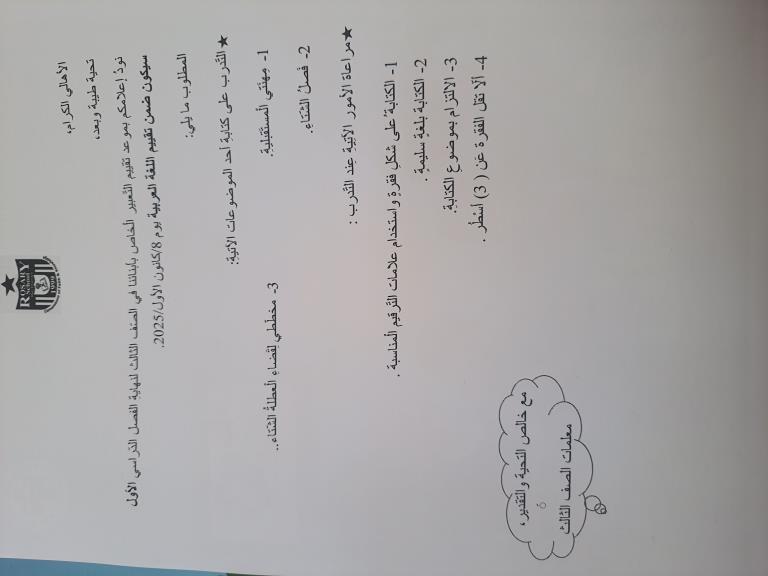 ROSARY
الأهالي الكرام،
تحية طيبة وبعد،
نودُ إعلامكم بموعد تقييم التعبير الخاص بأبنائنا في الصف الثالث لنهاية الفصل الدراسي الأول
سيكون ضمن تقييم اللغة العربية يوم 8/كانون الأول/2025.
المطلوب ما يلي:
★ التَّدرب على كتابةِ أحد الموضوعات الآتيةِ:
1- مِهنَتي المُستقبليةِ.
3- مخططي لِقضاءِ العطلةُ الشتاءِ..
2- فَصلُ الشتاءِ.
★مراعاة الأمور الآتيةِ عِند التَّدرب :
1- الكتابةُ على شكلِ فقرةٍ واستخدام علامات التَّرقيم المناسبة .
2- الكتابة بلغة سليمةٍ .
3- الالتزام بموضوعِ الكتابةِ.
4- ألّا تقل الفقرة عَن ( 3) أسْطُر .
مع خالص التحية والتقدير،
معلمات الصف الثالث